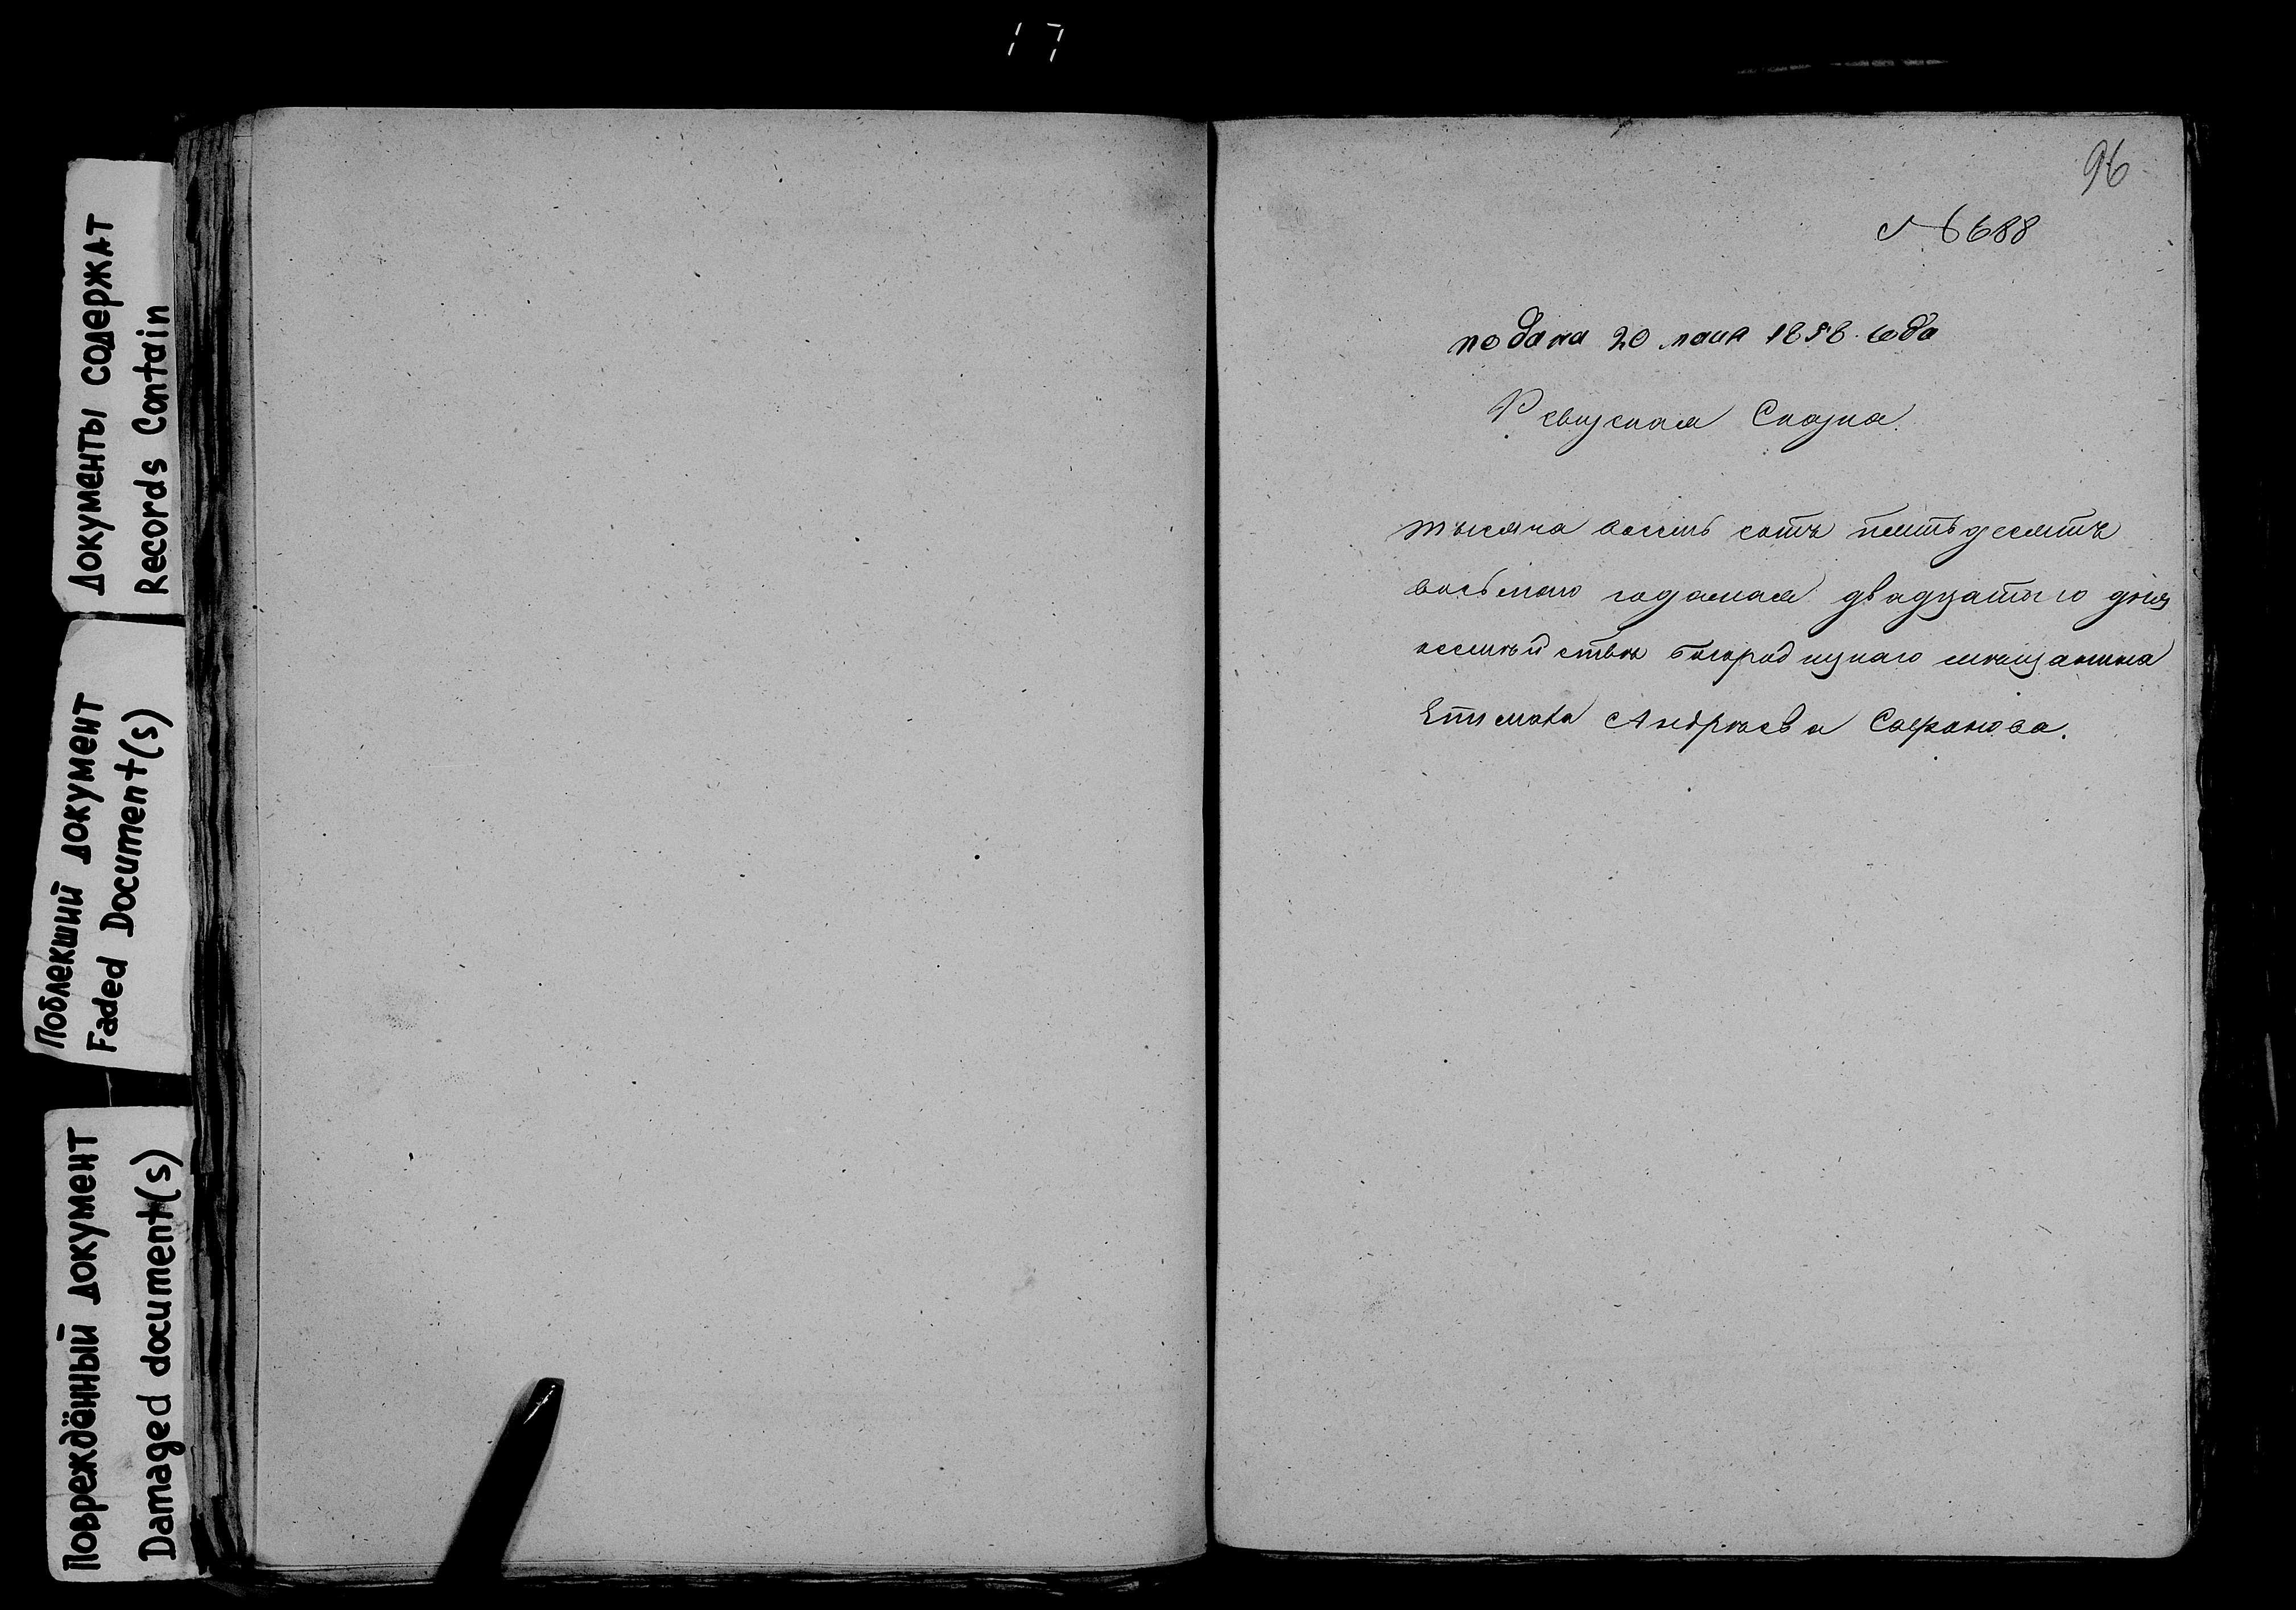 17
Документы содержат
Records Contain
Поблекший документ
Faded Document(s)
Повреждённый документ
Damaged document(s)
96
№ 6688
подана 20 маия 1858 года
Ревизская Сказка.
тысяча восемь сотъ пятьдесятъ
восьмаго года мая двадцатого дня
семѣйства богородицкаго мѣщанина
Андрѣева Сафонова.